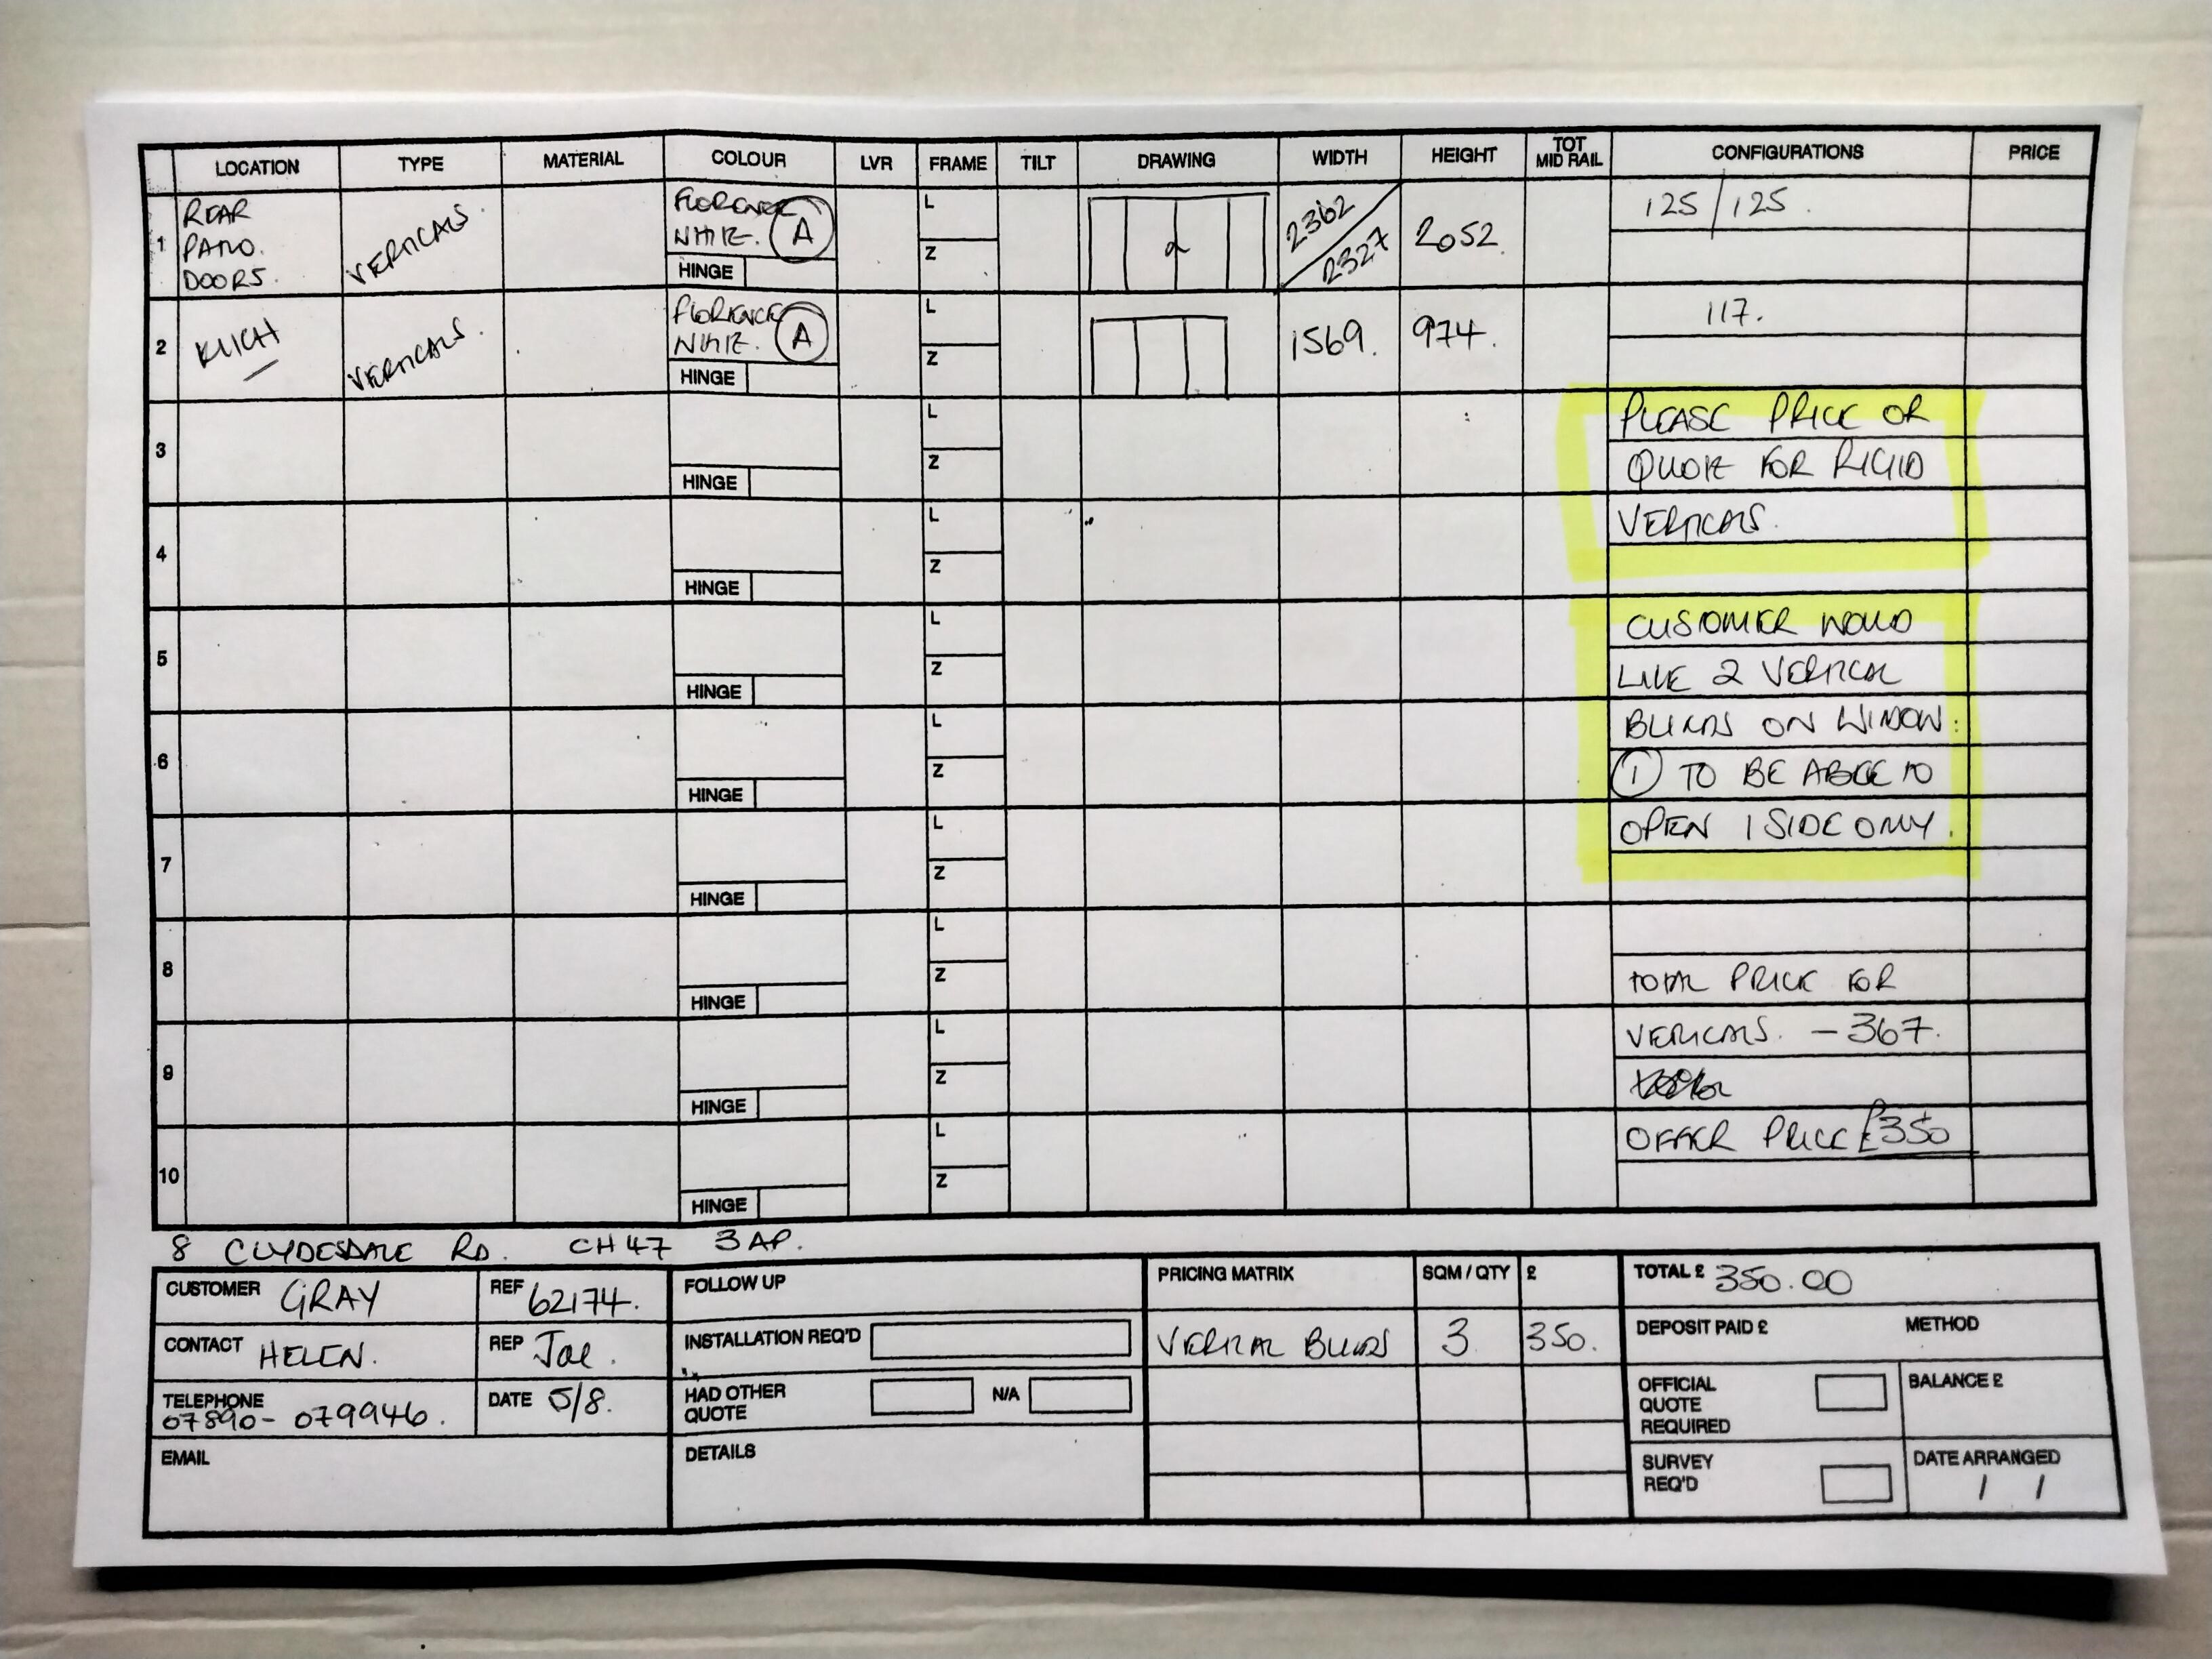 LOCATION TYPE MATERIAL COLOUR LVR FRAME TILT DRAWING WIDTH HEIGHT TOT MID RAIL CONFIGURATIONS PRICE
1 REAR PATIO. DOORS. VERTICALS. FLORENCE WHITE. A HINGE L Z 2 2362/2327 2052. 125/125.
2 KITCH VERTICALS. FLORENCE WHITE. A HINGE L Z 1569. 974. 117.
3 HINGE L Z PLEASE PRICE OR
QUOTE FOR RIGID
4 HINGE L Z VERTICALS.
5 HINGE L Z CUSTOMER WOULD
LIKE 2 VERTICAL
6 HINGE L Z BLINDS ON WINDOW:
1 TO BE ABLE TO
7 HINGE L Z OPEN 1 SIDE ONLY.
8 HINGE L Z TOTAL PRICE FOR
9 HINGE L Z VERTICALS. - 367.
10 HINGE L Z OFFER PRICE £350
8 CLYDESDALE RD. CH47 3AP.
CUSTOMER GRAY REF 62174.
CONTACT HELEN. REP Joe.
TELEPHONE 07890-079946. DATE 5/8.
EMAIL
FOLLOW UP
INSTALLATION REQ'D
HAD OTHER QUOTE N/A
DETAILS
PRICING MATRIX SQM / QTY £
VERTICAL BLINDS 3 350.
TOTAL £ 350.00
DEPOSIT PAID £ METHOD
OFFICIAL QUOTE REQUIRED BALANCE £
SURVEY REQ'D DATE ARRANGED / /